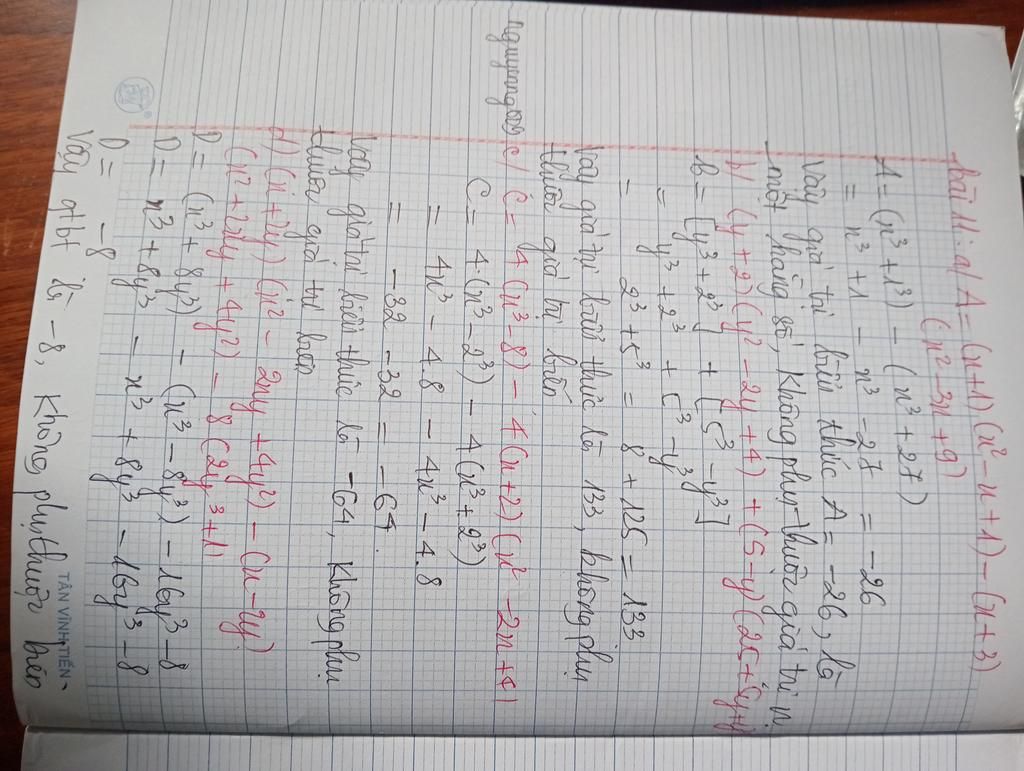 bài 11: a/ A = (x+1)(x² - x + 1) - (x+3)
(x² - 3x + 9)
A = (x³ + 1³) - (x³ + 27)
= x³ + 1 - x³ - 27 = -26
Vậy giá trị biểu thức A = -26, là
một hằng số, không phụ thuộc giá trị x.
b/ (y+2)(y² - 2y + 4) + (5-y)(25 + 5y + y
B = [y³ + 2³] + [5³ - y³]
= y³ + 2³ + 5³ - y³
= 2³ + 5³ = 8 + 125 = 133
Vậy giá trị biểu thức là 133, không phụ
thuộc giá trị biến
c/ C = 4(x³ - 8) - 4(x+2)(x² - 2x + 4)
C = 4.(x³ - 2³) - 4(x³ + 2³)
= 4x³ - 4.8 - 4x³ - 4.8
= -32 - 32 = -64.
Vậy giá trị biểu thức là -64, không phụ
thuộc giá trị biến
d) (x + 2y)(x² - 2xy + 4y²) - (x - 2y)
(x² + 2xy + 4y²) - 8(2y³ + 1)
D = (x³ + 8y³) - (x³ - 8y³) - 16y³ - 8
D = x³ + 8y³ - x³ + 8y³ - 16y³ - 8
D = -8
Vậy gtbt là -8, không phụ thuộc biến
TÂN VĨNH TIẾN